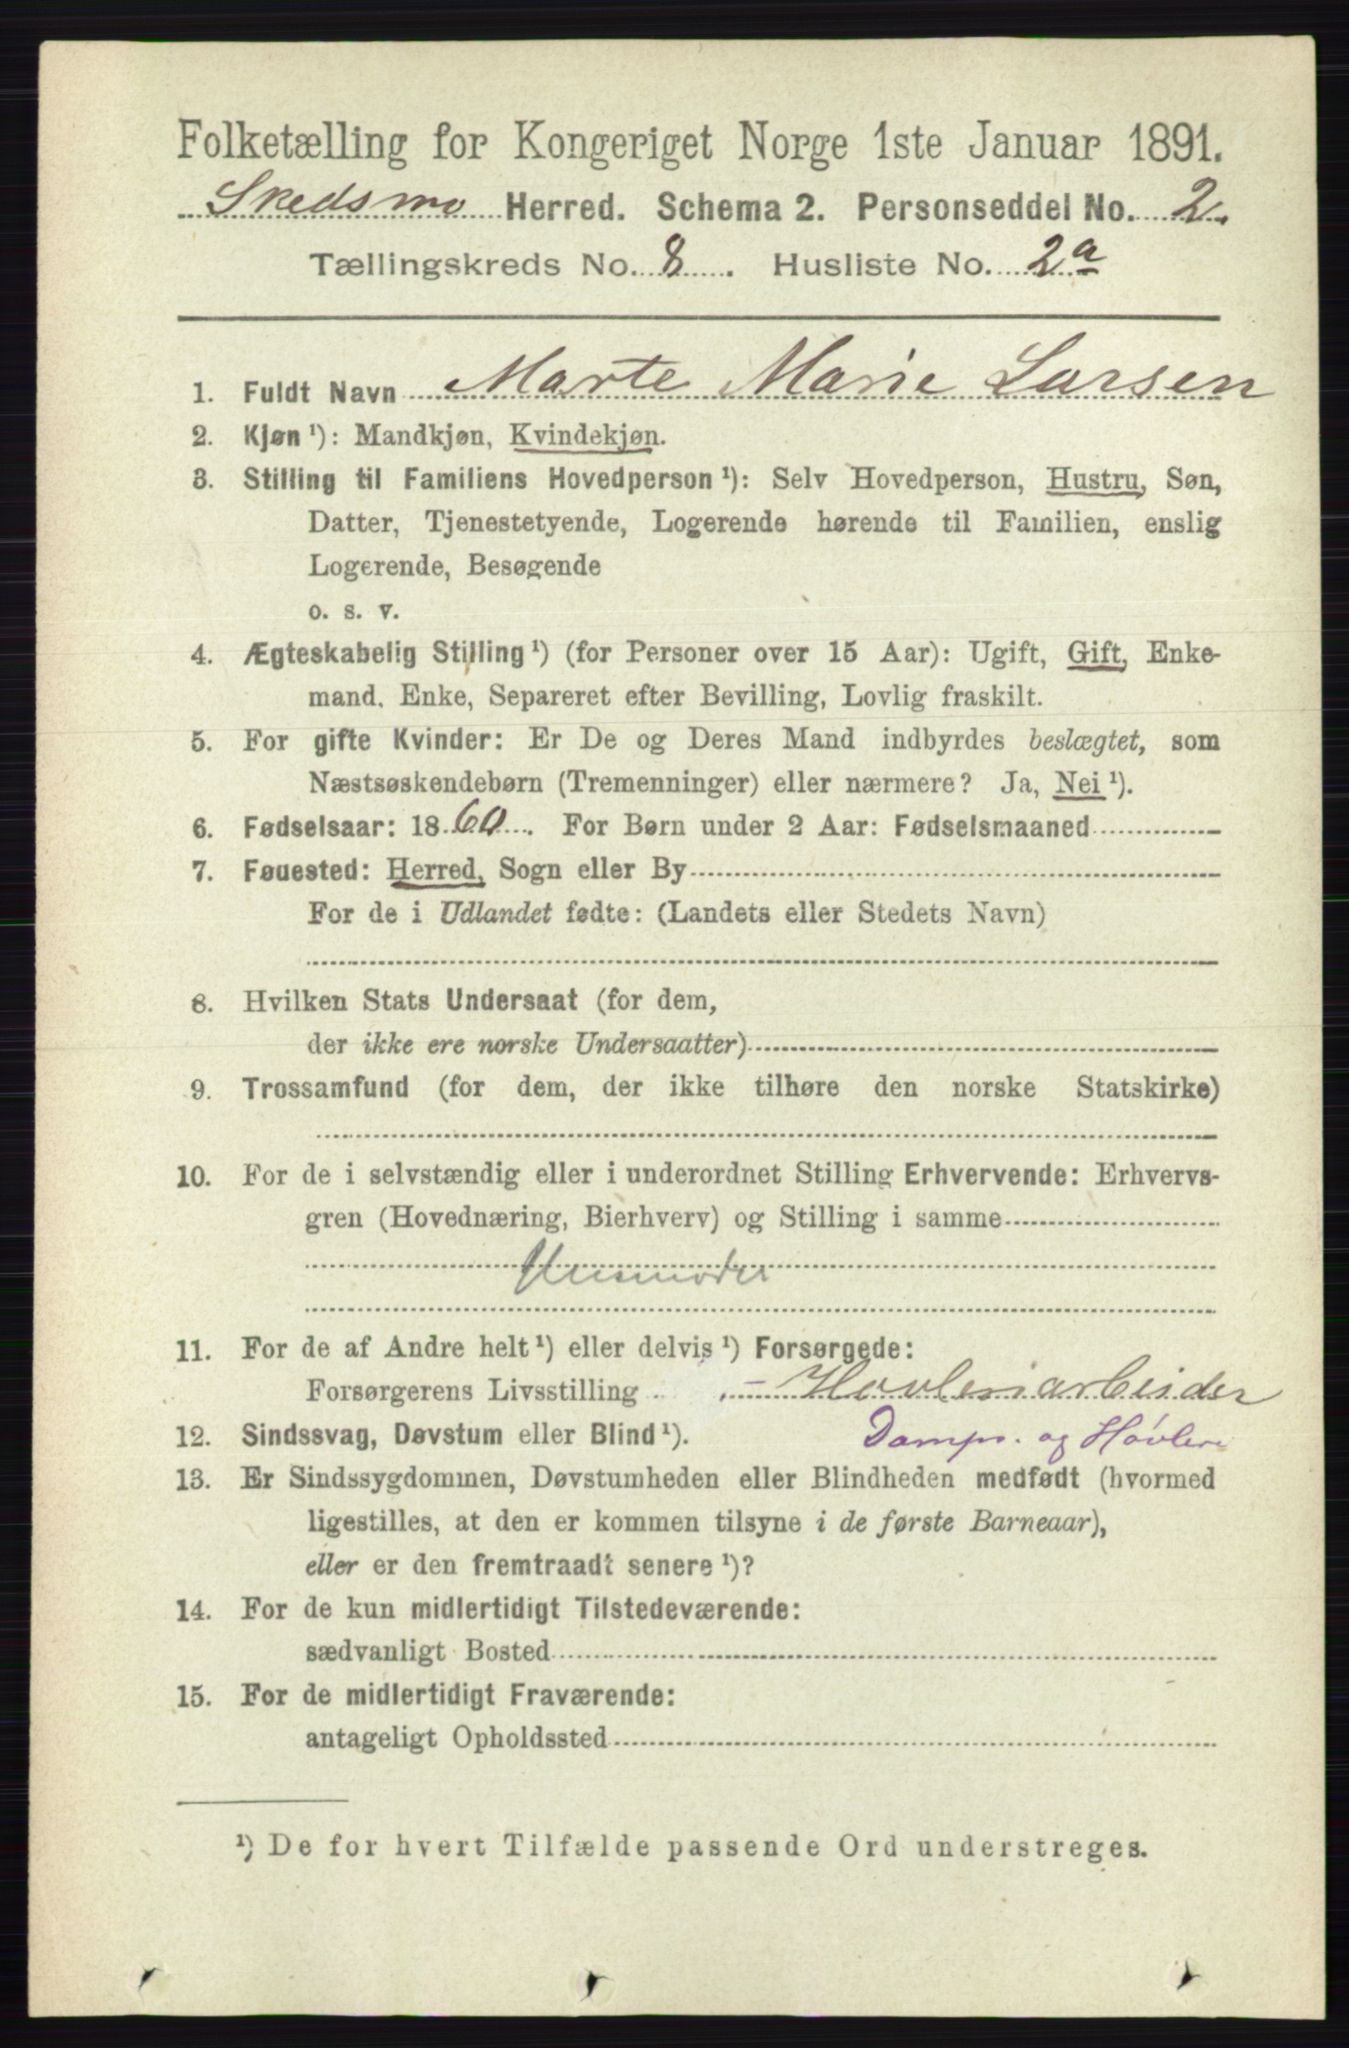 Folketælling for Kongeriget Norge 1ste Januar 1891.
Skedsmo Herred. Schema 2. Personseddel No. 2.
Tællingskreds No. 8. Husliste No. 2a
1. Fuldt Navn Marte Marie Larsen
2. Kjøn ¹): Mandkjøn, Kvindekjøn.
3. Stilling til Familiens Hovedperson ¹): Selv Hovedperson, Hustru, Søn,
Datter, Tjenestetyende, Logerende hørende til Familien, enslig
Logerende, Besøgende
o. s. v.
4. Ægteskabelig Stilling ¹) (for Personer over 15 Aar): Ugift, Gift, Enke-
mand. Enke, Separeret efter Bevilling, Lovlig fraskilt.
5. For gifte Kvinder: Er De og Deres Mand indbyrdes beslægtet, som
Næstsøskendebørn (Tremenninger) eller nærmere? Ja, Nei ¹).
6. Fødselsaar: 1860. For Børn under 2 Aar: Fødselsmaaned
7. Føuested: Herred, Sogn eller By
For de i Udlandet fødte: (Landets eller Stedets Navn)
8. Hvilken Stats Undersaat (for dem,
der ikke ere norske Undersaatter)
9. Trossamfund (for dem, der ikke tilhøre den norske Statskirke)
10. For de i selvstændig eller i underordnet Stilling Erhvervende: Erhvervs-
gren (Hovednæring, Bierhverv) og Stilling i samme
Husmoder
11. For de af Andre helt ¹) eller delvis ¹) Forsørgede:
Forsørgerens Livsstilling - Høvleriarbeider
12. Sindssvag, Døvstum eller Blind ¹). Damps. og Høvleri
13. Er Sindssygdommen, Døvstumheden eller Blindheden medfødt (hvormed
ligestilles, at den er kommen tilsyne i de første Barneaar),
eller er den fremtraadt senere ¹)?
14. For de kun midlertidigt Tilstedeværende:
sædvanligt Bosted
15. For de midlertidigt Fraværende:
antageligt Opholdssted
¹) De for hvert Tilfælde passende Ord understreges.